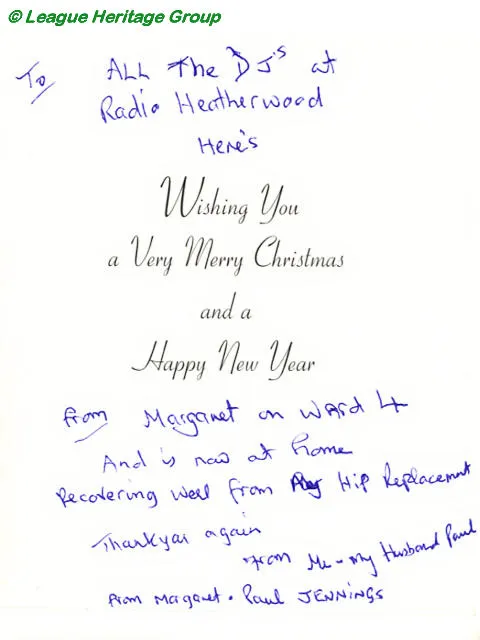 © League Heritage Group
To ALL The DJ's at
Radio Heatherwood
Here's
Wishing You
a Very Merry Christmas
and a
Happy New Year
from Margaret on WARD 4
And is now at home
Recovering well from My Hip Replacement
Thankyou again
From Me - my Husband Paul
From Margaret . Paul JENNINGS